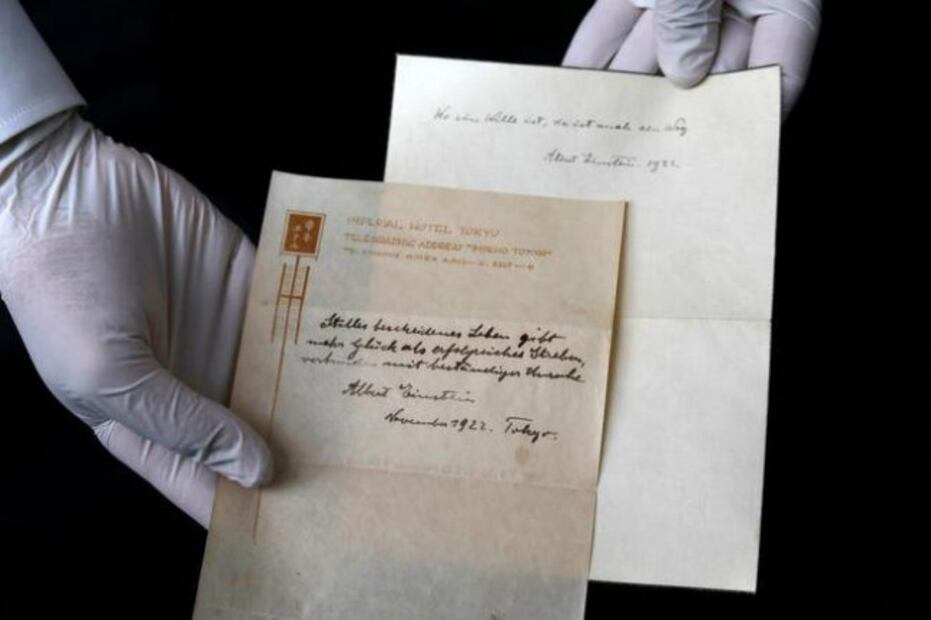 Wo ein Wille ist, da ist auch ein Weg
Albert Einstein. 1922.
帝国
ホテル
IMPERIAL HOTEL TOKYO
TELEGRAPHIC ADDRESS "IMPEHO TOKYO"
Stilles bescheidenes Leben gibt
mehr Glück als erfolgreiches Streben,
verbunden mit beständiger Unruhe
Albert Einstein
November 1922. Tokyo.